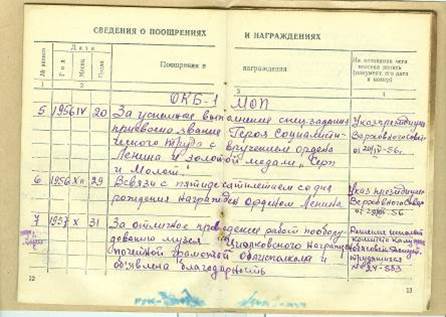 СВЕДЕНИЯ О ПООЩРЕНИЯХ И НАГРАЖДЕНИЯХ
№ записи
Дата
Год
Месяц
Число
Поощрения и награждения
На основании чего внесена запись (документ, его дата и номер)
1 2 3 4
ОКБ-1 МОП
5 1956 IV 20 За успешное выполнение спецзадания Указ Президиума
присвоено звание Героя Социалисти- Верховного Совет.
ческого Труда с вручением ордена от 20/IV-56г.
Ленина и золотой медали „Серп
и Молот".
6 1956 XII 29 В связи с пятидесятилетием со дня Указ Президиума
рождения награжден орденом Ленина Верховного Совет.
7 1957 X 31 За отличное проведение работ по обору-
дованию музея Циолковского награжден
почетной грамотой облисполкома и
объявлена благодарность № 24-553
12 13